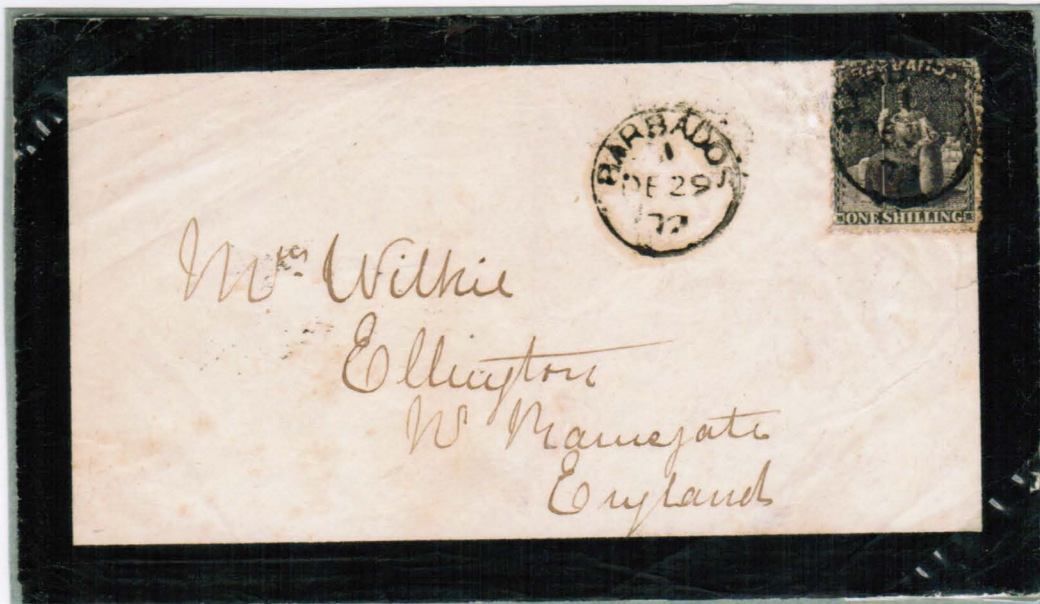 BARBADOS
1
DE 29
72
BARBADOS
ONE SHILLING
Mrs Wilkie
Ellington
Nr Ramsgate
England